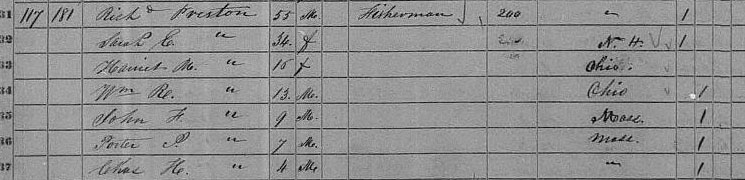 31 117 181 Richd Preston 55 M. Fisherman 200 " 1
32 Sarah C. " 34 f N. H. 1
33 Harriet M. " 16 f Ohio.
34 Wm Re. " 13 M. Ohio 1
35 John F. " 9 M. Mass. 1
36 Porter P. " 7 M. Mass. 1
37 Chas H. " 4 M. " 1